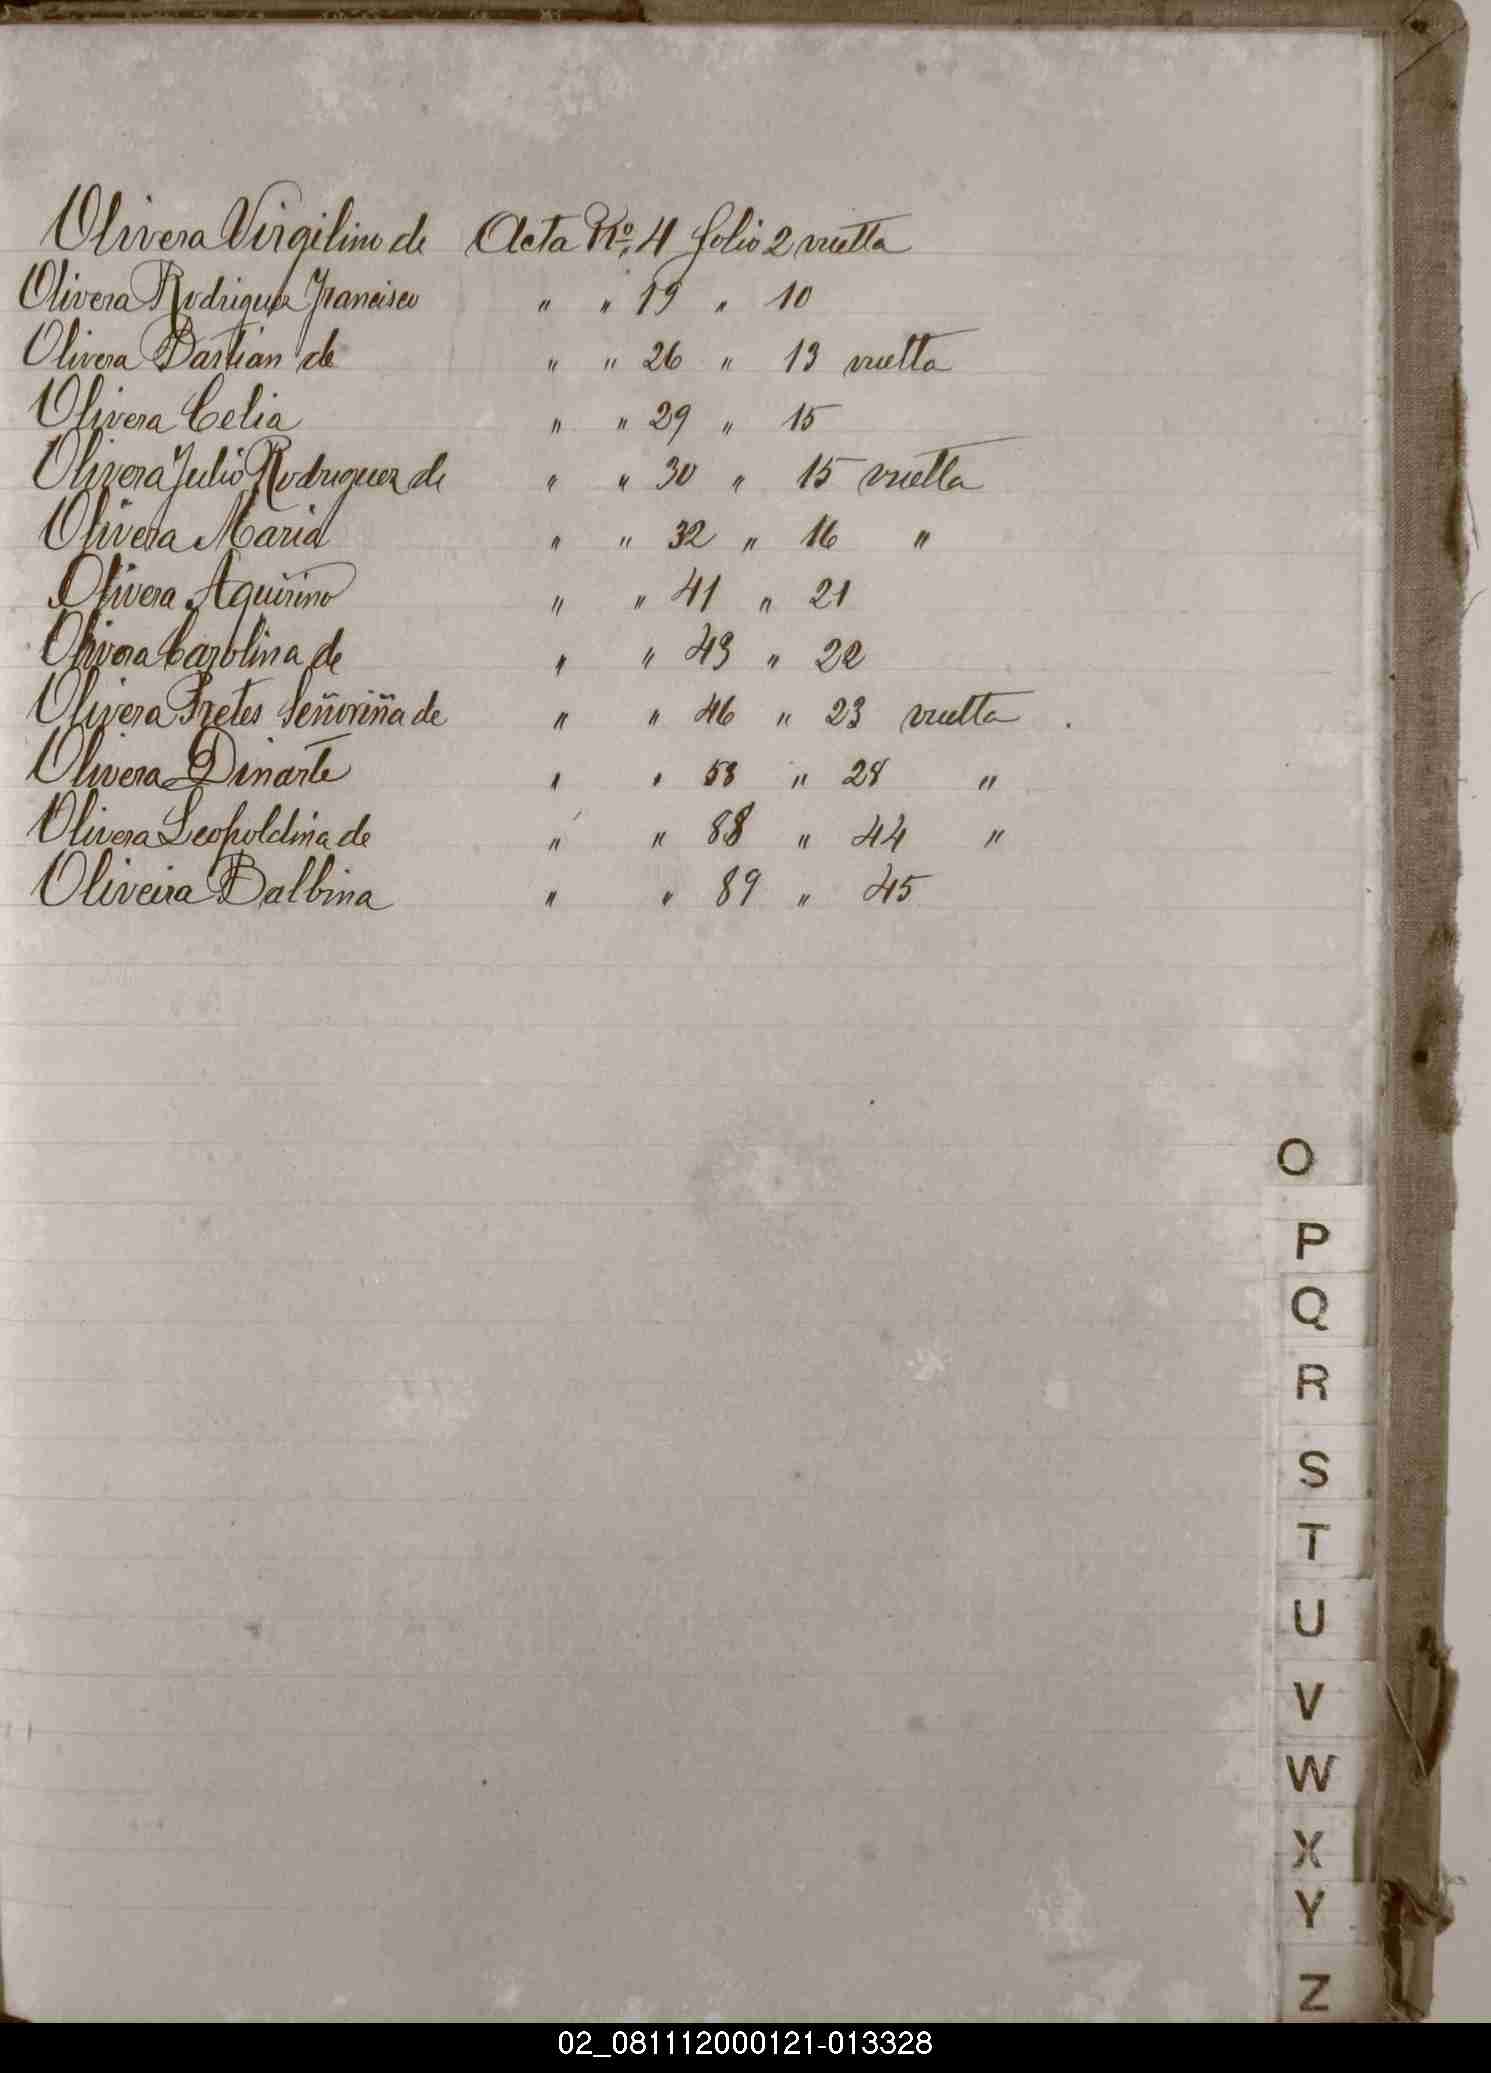 Olivera Virgilino de Acta Nº. 4 folio 2 vuelta
Olivera Rodriguez Francisco " " 19 " 10
Olivera Bastian de " " 26 " 13 vuelta
Olivera Celia " " 29 " 15
Olivera Julio Rodriguez de " " 30 " 15 vuelta
Olivera Maria " " 32 " 16 "
Olivera Aquirino " " 41 " 21
Olivera Carolina de " " 43 " 22
Olivera Pretes Señoriña de " " 46 " 23 vuelta
Olivera Dinarte " " 58 " 28 "
Olivera Leopoldina de " " 88 " 44 "
Oliveira Balbina " " 89 " 45
O
P
Q
R
S
T
U
V
W
X
Y
Z
02_081112000121-013328